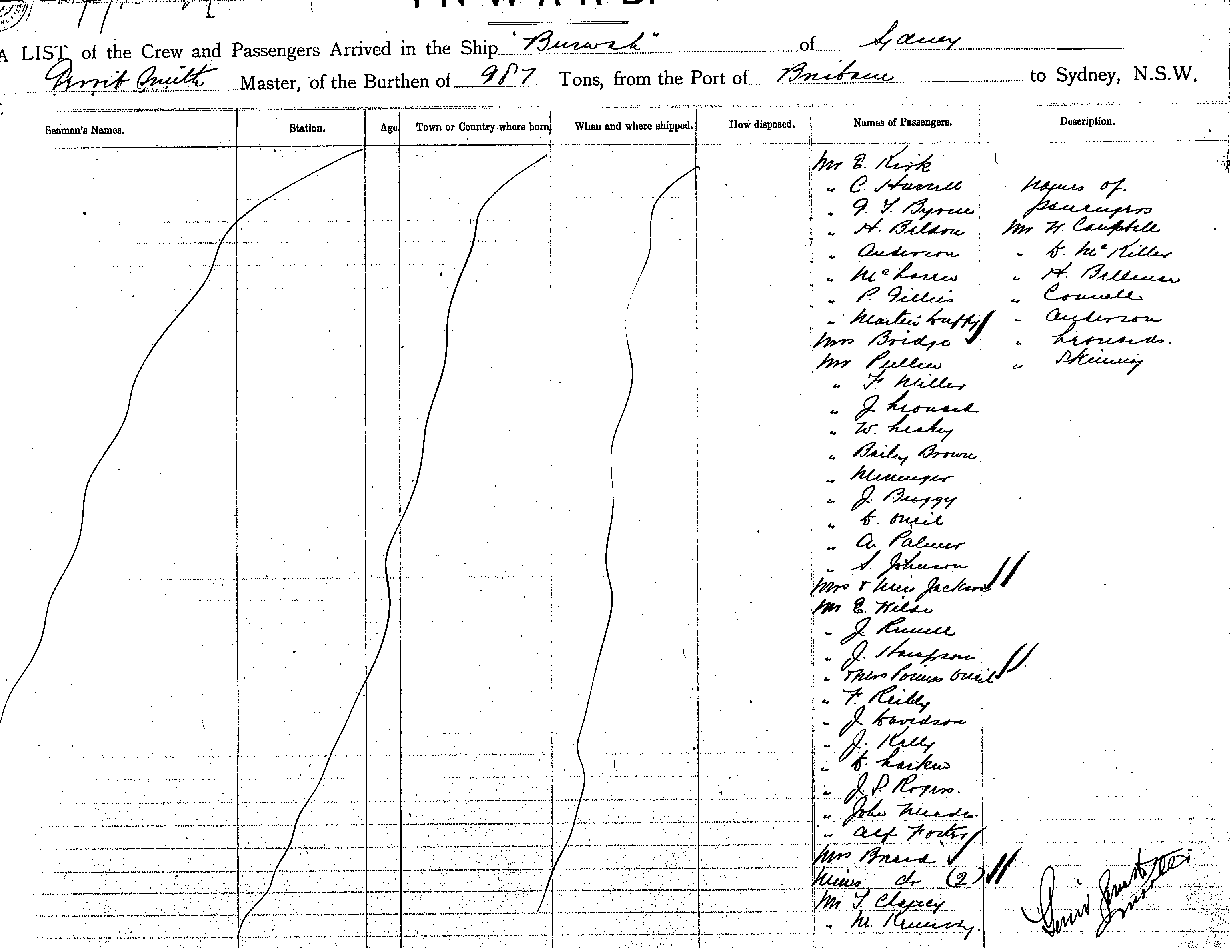 INWARD.
A LIST of the Crew and Passengers Arrived in the Ship "Burwah" of Sydney
Smith Master, of the Burthen of 987 Tons, from the Port of Brisbane to Sydney, N.S.W.
Seaman's Names. Station. Age. Town or Country where born When and where shipped. How disposed. Names of Passengers. Description.
Mr E. Kirk
" C. Names of
" Byrne passengers
" H. Mr W. Campbell
" Anderson " D. McKiller
" " H.
" P. Gillies " Connell
" Martin Duffy " Anderson
Mrs Bridge " Leonards.
Mr Pullen " Skinning
" F. Miller
" J. Leonard
" W. Leahy
" Bailey Brown
" Messenger
" J. Buggy
" D. Oneil
" A. Palmer
" S. Johnson
Mrs & Miss Jackson
Mr E. Wilde
" J. Russell
" J. Hampson
" & Mrs Oneil
" F. Reilly
" J. Davidson
" J. Kelly
" D. Larkin
" J. P. Rogers.
" John Meade
" Alf Foster
Mrs
Misses do (2)
Mr T. Clancy
" M.